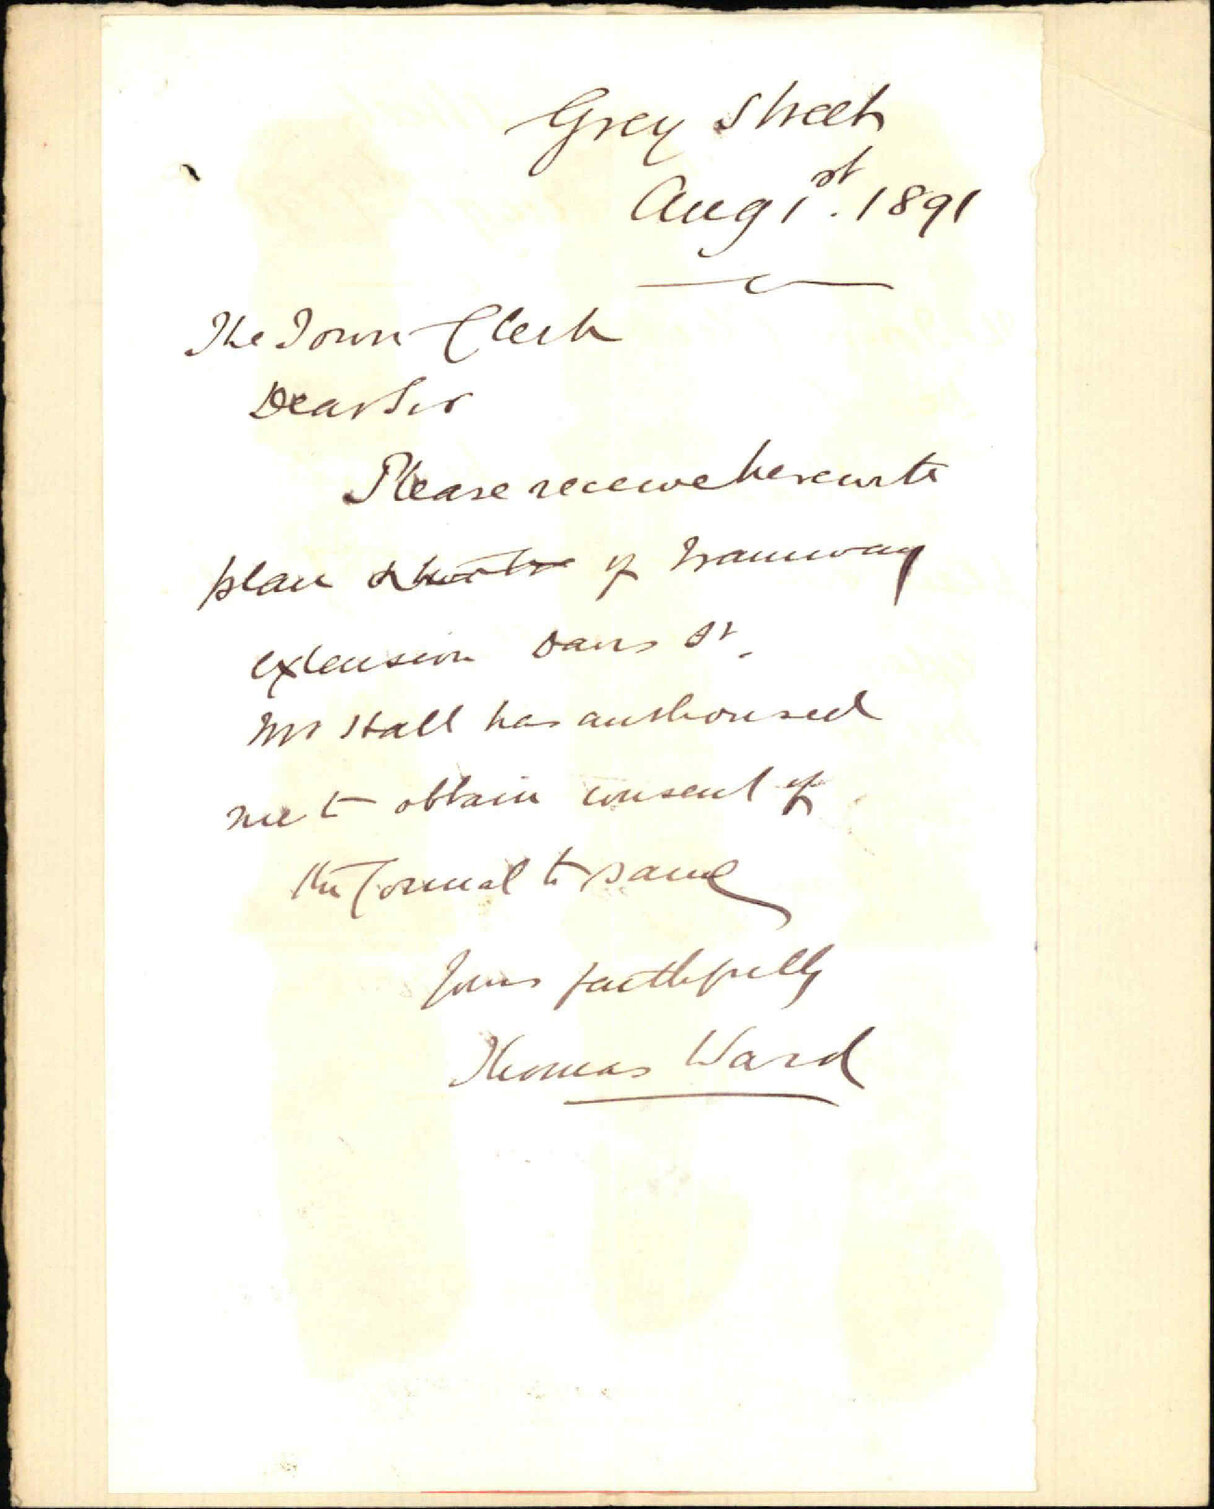 Grey Street
Aug 1st. 1891
The Town Clerk
Dear Sir
Please receive herewith
plan of Tramway
extension Davis St.
Mr Hall has authorised
me to obtain consent of
the Council to same
Yours faithfully
Thomas Ward